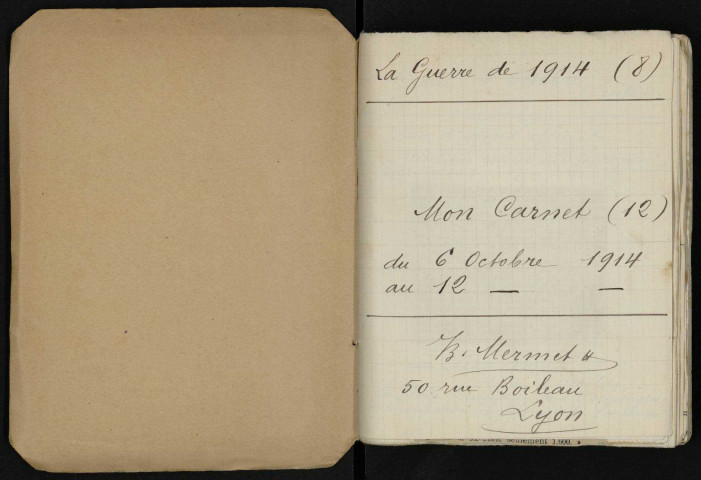 La Guerre de 1914 (8)
Mon Carnet (12)
du 6 Octobre 1914
au 12 — —
B. Mermet
50 rue Boileau
Lyon
seulement 1.600.